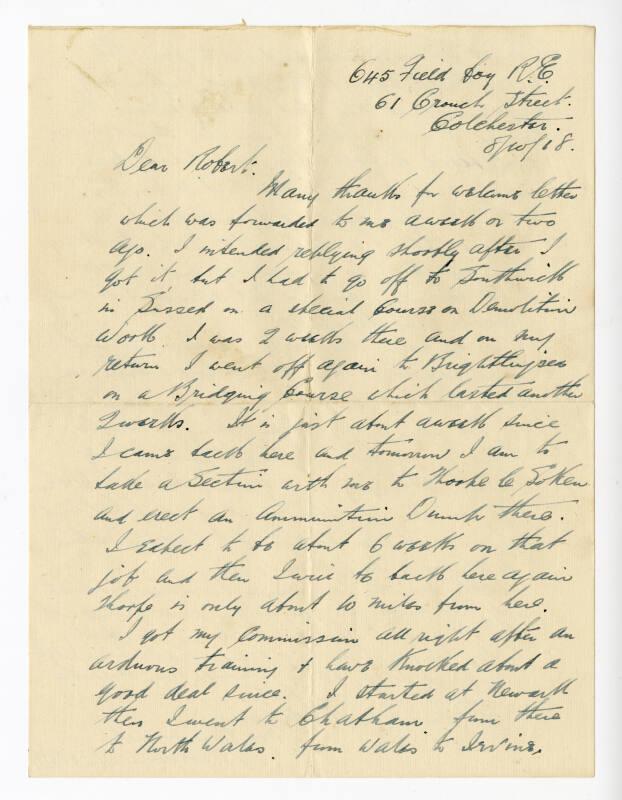 645 Field Coy R.E.
61 Crouch Street.
Colchester.
8/10/18.
Dear Robert.
Many thanks for welcome letter
which was forwarded to me a week or two
ago. I intended replying shortly after I
got it, but I had to go off to Southwick
in Sussex on a special Course on Demolition
Work. I was 2 weeks there and on my
return I went off again to Brightlingsea
on a Bridging Course which lasted another
2 weeks. It is just about a week since
I came back here and tomorrow I am to
take a Section with me to Thorpe le Soken
and erect an Ammunition Dump there.
I expect to be about 6 weeks on that
job and then I will be back here again
Thorpe is only about 10 miles from here.
I got my Commission all right after an
arduous training & have knocked about a
good deal since. I started at Newark
then I went to Chatham from there
to North Wales. from Wales to Irvine,